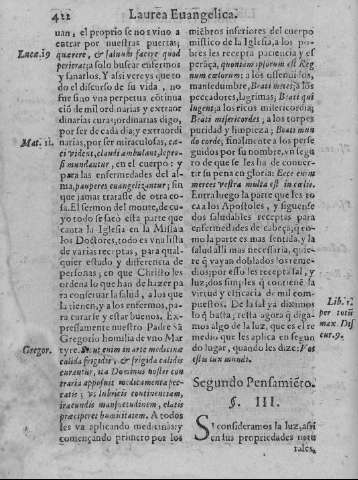 422
Laurea Euangelica.
uan, el proprio se nos vino a
entrar por nuestras puertas;
Luca. 19
quærere, & saluum facere quod
perierat; a solo buscar enfermos
y sanarlos. Y assi vereys que to
do el discurso de su vida, no
fue sino vna perpetua continua
ció de mil ordinarias y extraor
dinarias curas; ordinarias digo,
por ser de cada dia; y extraordi
Mat. 11.
narias, por ser miraculosas, cæ-
ci vident, claudi ambulant, lepro-
si mundantur, en el cuerpo: y
para las enfermedades del al-
ma, pauperes euangelizantur; sin
que jamas tratasse de otra co-
sa. El sermon del monte, de cu-
yo todo se sacó esta parte que
canta la Iglesia en la Missa a
los Doctores, todo es vna lista
de varias receptas, para qual-
quier estado y diferencia de
personas, en que Christo les
ordena lo que han de hazer pa
ra conseruar la salud, a los que
la tienen, y a los enfermos, pa-
ra curarse y estar buenos. Ex-
pressamente nuestro Padre sã
Gregorio homilia de vno Mar
Gregor.
tyre. Sicut enim in arte medicina
calida frigidis, & frigida calidis
curantur, ita Dominus noster con
traria apposuit medicamenta pec-
catis; vt lubricis continentiam,
iracundis mansuetudinem, elatis
præciperet humilitatem. A todos
les va aplicando medicinas; y
començando primero por los
miébros inferiores del cuerpo
mistico de la Iglesia, a los po-
bres les recepta paciencia y es
perãça, quoniam ipsorum est Reg
num cælorum: a los
mansedumbre, Beati mites; a los
peccadores, lagrimas; Beati qui
lugent; a los ricos misericordia;
Beati misericordes, a los torpes
puridad y limpieza; Beati mun
do corde, finalmente a los perse
guidos por su nombre, vn segu
ro de que se les ha de conuer-
tir su pena en gloria: Ecce enim
merces vestra multa est in cælis.
Entra luego la parte que les to
ca a los Apostoles, y siguense
dos saludables receptas para
enfermedades de cabeça, q como
la parte es mas sentida, y la
salud alli mas necessaria, quie-
re q vayan doblados los reme-
dios; por esso les recepta sal, y
luz, dos simples q contiene la
virtud y eficacia de mil com-
puestos. De la sal ya diximos
lo q basta; resta agora q diga-
Lib. 1.
per totũ
max. Dis
cur. 9.
mos algo de la luz, que es el re
medio que les aplica en segun
do lugar, quando les dize: Vos
estis lux mundi.
Segundo Pensamiẽto.
§. III.
SI consideramos la luz, assi
en sus propriedades natu
rales,